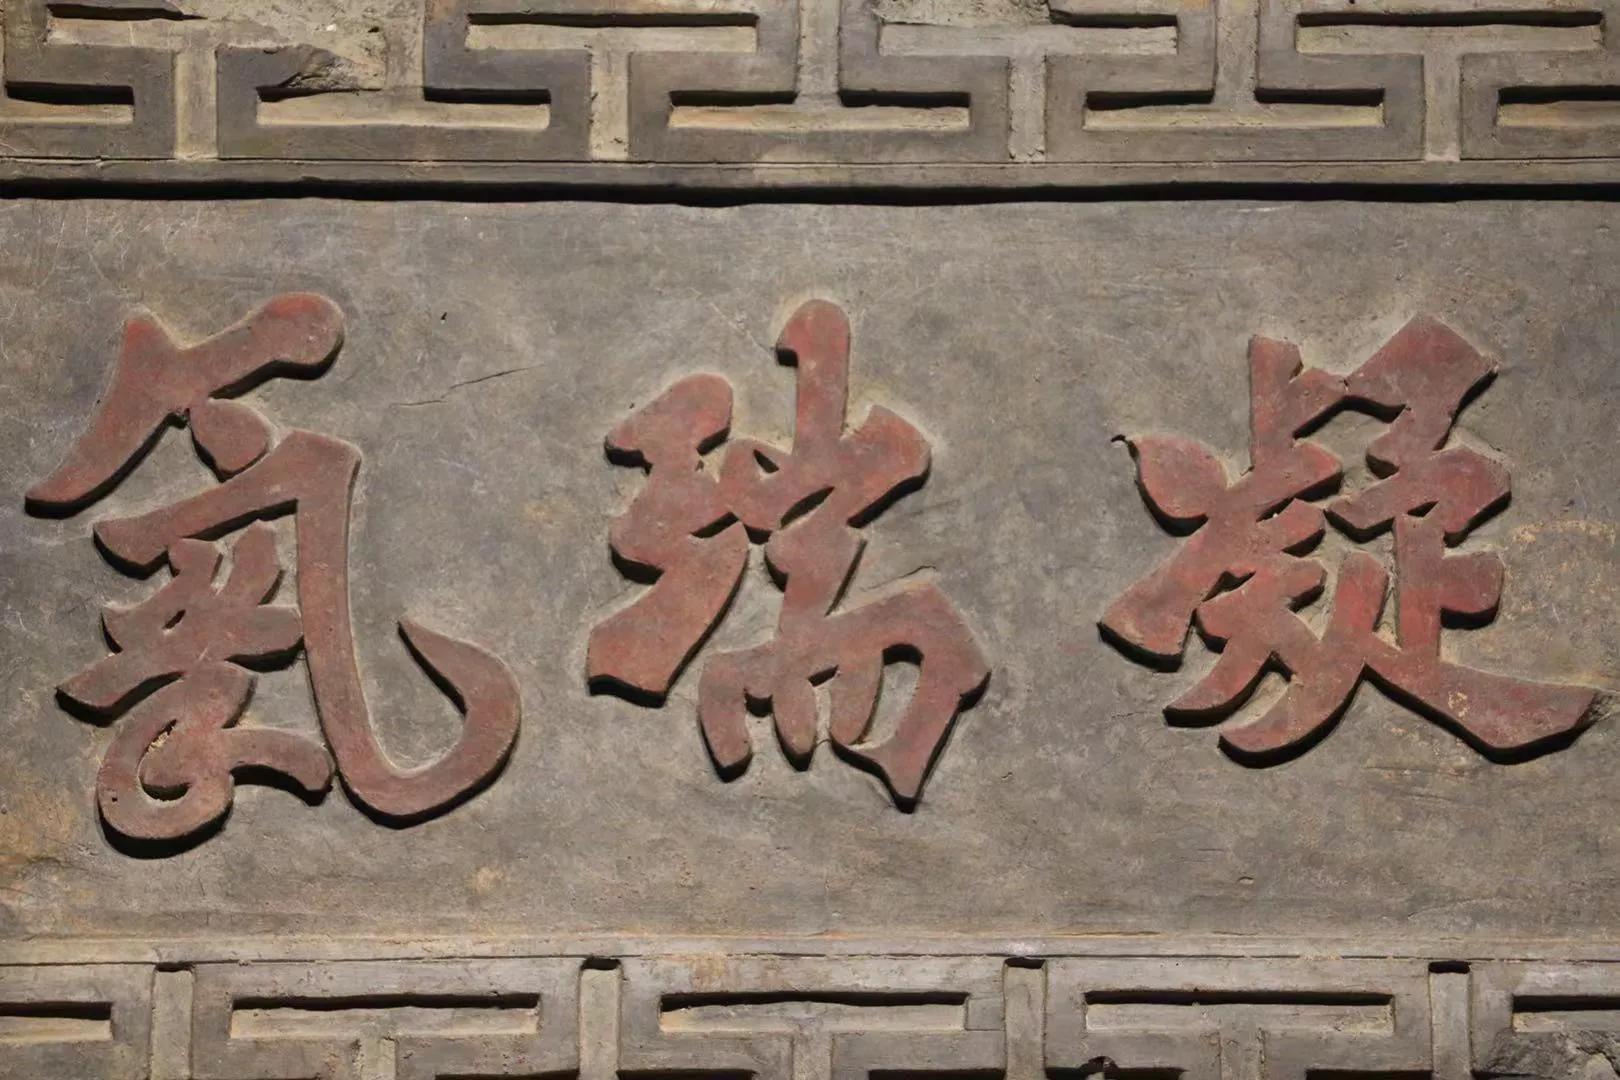 凝瑞氣